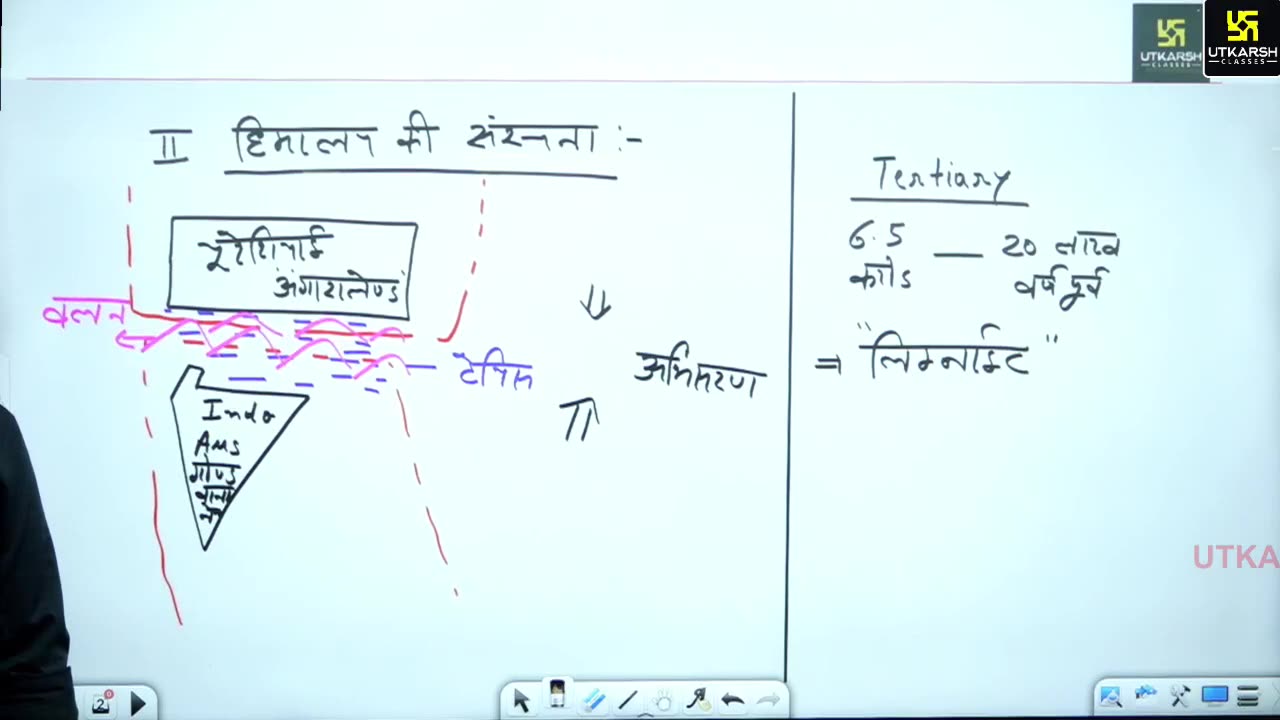 UTKARSH
CLASSES
UTKARSH
CLASSES
II हिमालय की संरचना :-
यूरेशियाई
अंगारालेण्ड
वलन
टेथिस
अभिसरण
Indo
Aus
गोण्ड
वाना
Tertiary
6.5 — 20 लाख
करोड़ वर्ष पूर्व
⇒ "लिग्नाईट"
UTKA
2